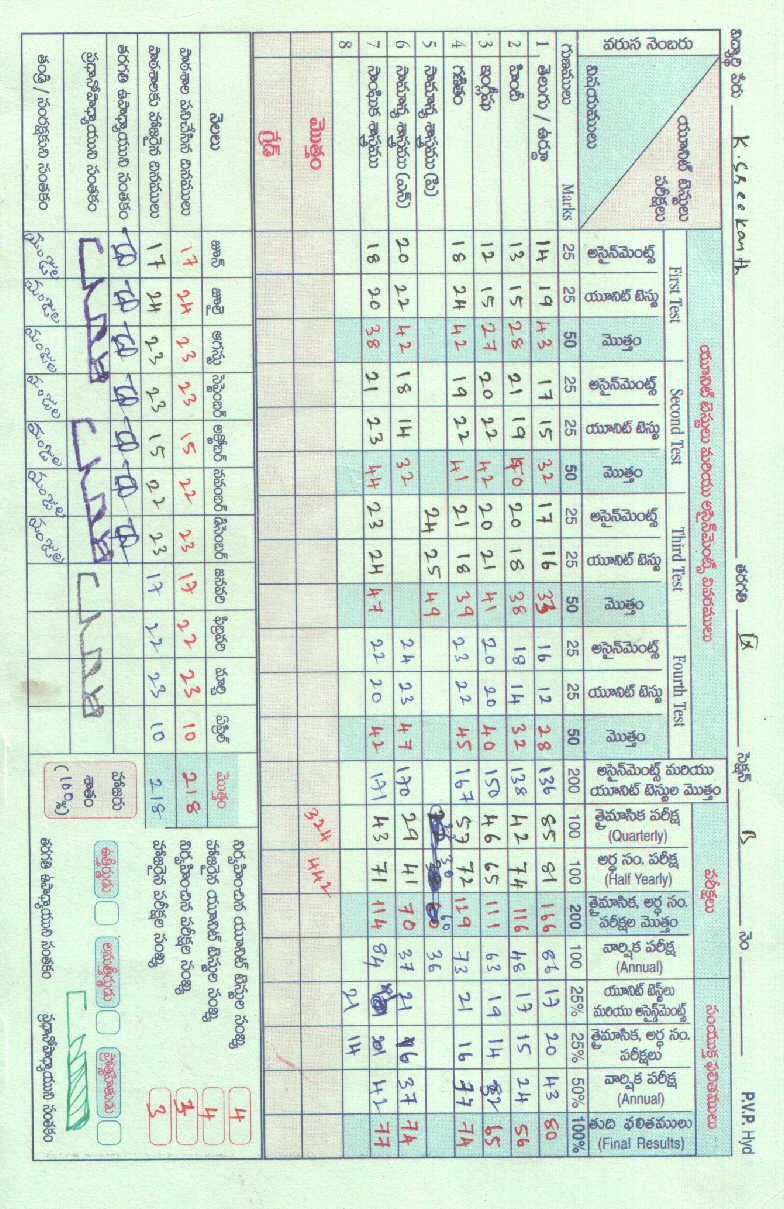 విద్యార్థి పేరు K. Sreekanth తరగతి IX సెక్షన్ B నెం P.V.P. Hyd
వరుస నెంబరు యూనిట్ టెస్టులు పరీక్షలు విషయములు యూనిట్ టెస్టులు మరియు అసైన్‌మెంట్స్ వివరములు పరీక్షలు సంయుక్త ఫలితములు
First Test Second Test Third Test Fourth Test
అసైన్‌మెంట్స్ యూనిట్ టెస్టు మొత్తం అసైన్‌మెంట్స్ యూనిట్ టెస్టు మొత్తం అసైన్‌మెంట్స్ యూనిట్ టెస్టు మొత్తం అసైన్‌మెంట్స్ యూనిట్ టెస్టు మొత్తం అసైన్‌మెంట్స్ మరియు యూనిట్ టెస్టుల మొత్తం త్రైమాసిక పరీక్ష (Quarterly) అర్ధ సం. పరీక్ష (Half Yearly) త్రైమాసిక, అర్ధ సం. పరీక్షల మొత్తం వార్షిక పరీక్ష (Annual) యూనిట్ టెస్ట్‌లు మరియు అసైన్‌మెంట్స్ త్రైమాసిక, అర్ధ సం. పరీక్షలు వార్షిక పరీక్ష (Annual) తుది ఫలితములు (Final Results)
గుణములు Marks 25 25 50 25 25 50 25 25 50 25 25 50 200 100 100 200 100 25% 25% 50% 100%
1 తెలుగు / ఉర్దూ 14 19 43 17 15 32 17 16 33 16 12 28 136 85 81 166 86 17 20 43 80
2 హిందీ 13 15 28 21 19 40 20 18 38 18 14 32 138 42 74 116 48 17 15 24 56
3 ఇంగ్లీషు 12 15 27 20 22 42 20 21 41 20 20 40 150 46 65 111 63 19 14 32 65
4 గణితం 18 24 42 19 22 41 21 18 39 23 22 45 167 57 72 129 73 21 16 37 74
5 సామాన్య శాస్త్రము (పి) 24 25 49 30 60 36
6 సామాన్య శాస్త్రము (ఎన్) 20 22 42 18 14 32 24 23 47 170 29 41 70 37 21 16 37 74
7 సాంఘిక శాస్త్రము 18 20 38 21 23 44 23 24 47 22 20 42 171 43 71 114 84 42 77
8 21 14
మొత్తం 324 442
గ్రేడ్
నెలలు జూన్ జూలై ఆగస్టు సెప్టెంబర్ అక్టోబర్ నవంబర్ డిసెంబర్ జనవరి ఫిబ్రవరి మార్చి ఏప్రిల్ మొత్తం
పాఠశాల పనిచేసిన దినములు 17 24 23 23 15 22 23 17 22 23 10 218
పాఠశాలకు హాజరైన దినములు 17 24 23 23 15 22 23 17 22 23 10 218
తరగతి ఉపాధ్యాయుని సంతకం
ప్రధానోపాధ్యాయుని సంతకం
తండ్రి / సంరక్షకుని సంతకం మంజుల మంజుల మంజుల మంజుల మంజుల మంజుల మంజుల
హాజరు శాతం (100%)
నిర్వహించిన యూనిట్ టెస్టుల సంఖ్య 4
హాజరైన యూనిట్ టెస్టుల సంఖ్య 4
నిర్వహించిన పరీక్షల సంఖ్య 3
హాజరైన పరీక్షల సంఖ్య 3
ఉత్తీర్ణుడు అనుత్తీర్ణుడు ప్రోత్సాహితుడు
తరగతి ఉపాధ్యాయుని సంతకం ప్రధానోపాధ్యాయుని సంతకం